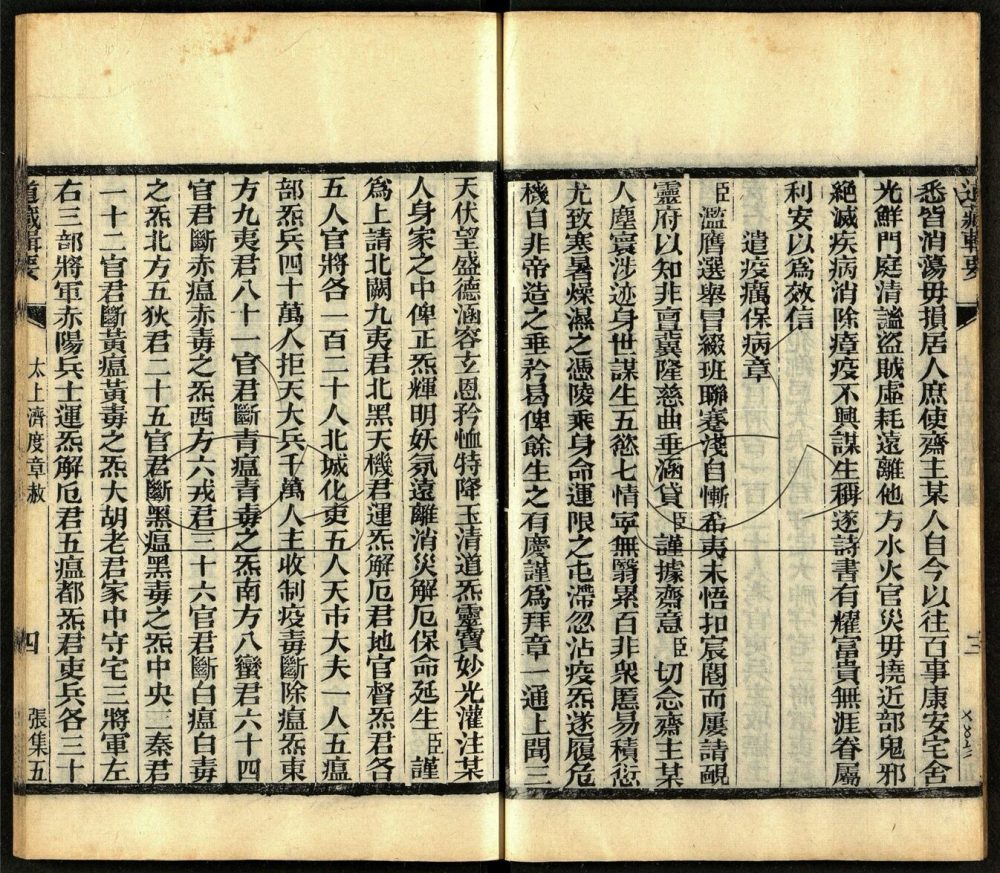 悉皆消蕩毋損居人庶使齋主某人自今以往百事康安宅舍
光鮮門庭清謐盜賊虛耗遠離他方水火官災毋撓近部鬼邪
絕滅疾病消除瘴疫不興謀生稱遂詩書有耀富貴無涯眷屬
利安以為效信
遣疫癘保病章
臣濫膺選舉冒綴班聯蹇淺自慚希夷未悟扣宸閽而屢請覼
靈府以知非亶冀隆慈曲垂涵貸臣謹據齋意臣切念齋主某
人塵寰涉迹身世謀生五慾七情寧無翳累百非衆慝易積愆
尤致寒暑燥濕之憑陵乘身命運限之屯滯忽沾疫炁遂履危
機自非帝造之垂矜曷俾餘生之有慶謹為拜章一通上聞三
天伏望盛德涵容玄恩矜恤特降玉清道炁靈寶妙光灌注某
人身家之中俾正炁輝明妖氛遠離消災解厄保命延生臣謹
為上請北闕九夷君北黑天機君運炁解厄君地官督炁君各
五人官將各一百二十人北城化吏五人天市大夫一人五瘟
部炁兵四十萬人拒天大兵千萬人主收制疫毒斷除瘟炁東
方九夷君八十一官君斷青瘟青毒之炁南方八蠻君六十四
官君斷赤瘟赤毒之炁西方六戎君三十六官君斷白瘟白毒
之炁北方五狄君二十五官君斷黑瘟黑毒之炁中央三秦君
一十二官君斷黃瘟黃毒之炁大胡老君家中守宅三將軍左
右三部將軍赤陽兵士運炁解厄君五瘟都炁君吏兵各三十
道藏輯要 太上濟度章赦 四 張集五